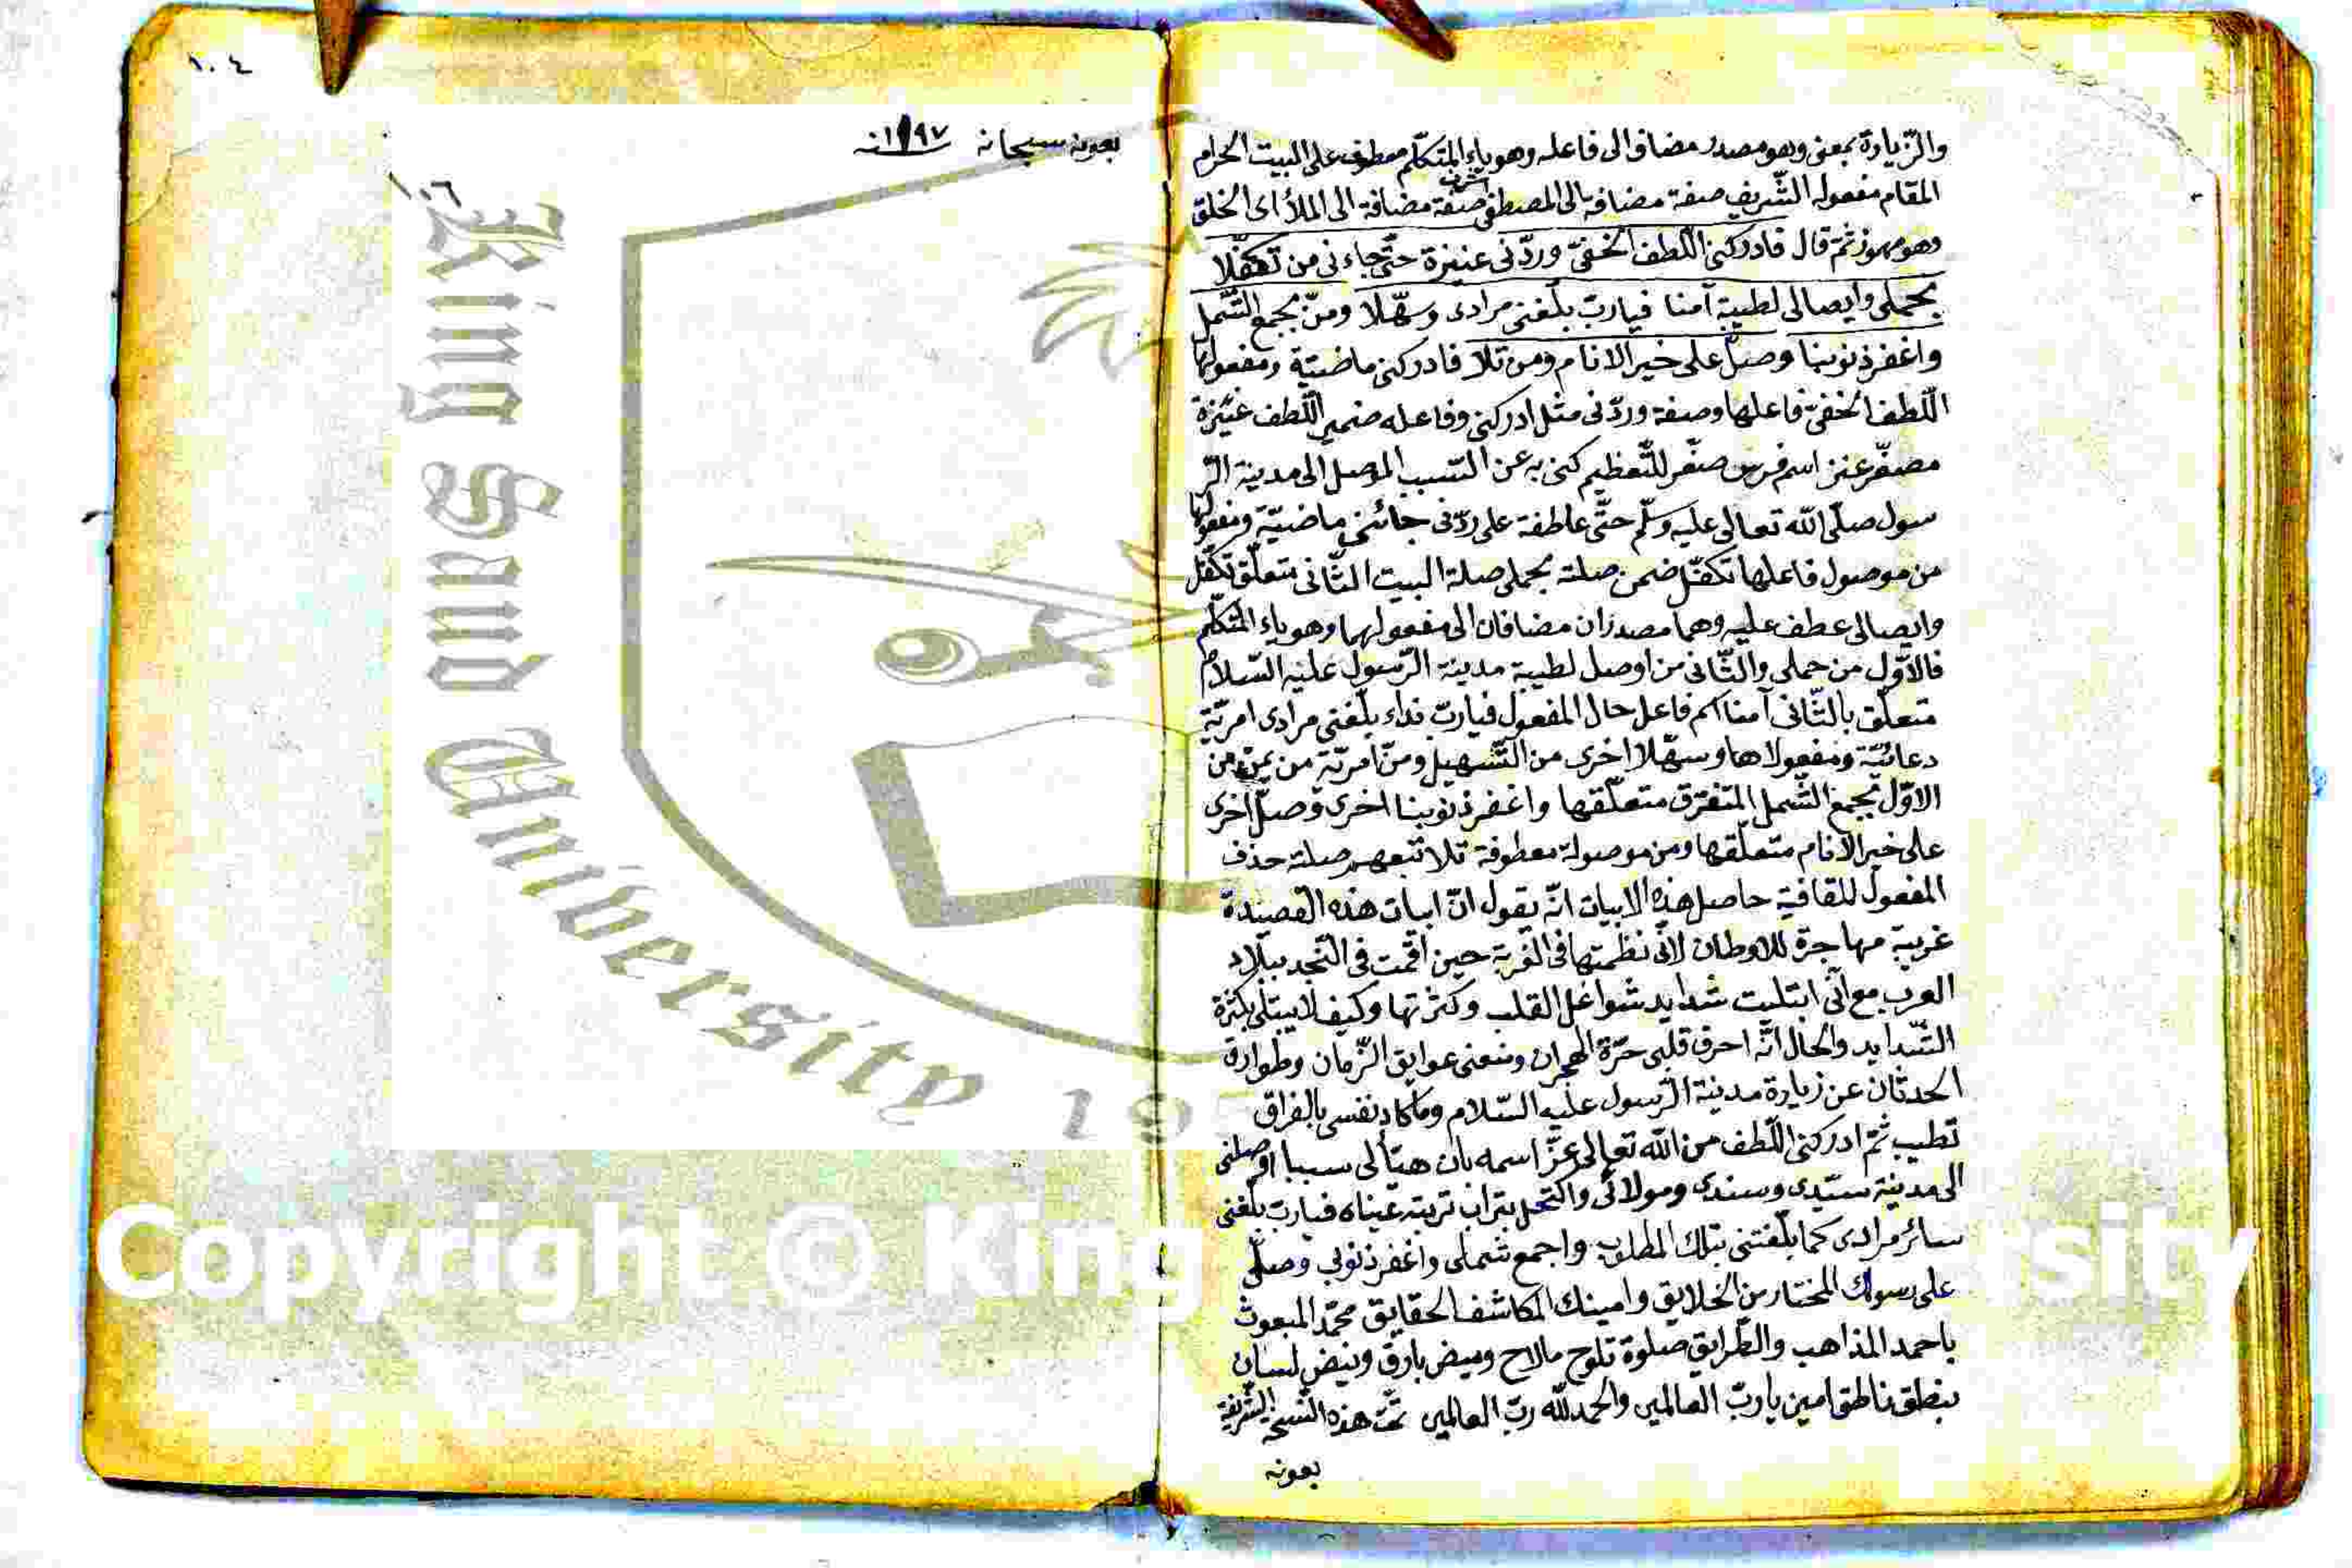 والزيارة بمعنى وهو مصدر مضاف الى فاعله وهو ياء المتكلّم معطوف على البيت الحرام
المقام مفعوله الشّريف صفة مضافة الى المصطفى اشرف صفة مضافة الى الملأ اى الخلق
وهو مهموز ثمّ قال فادركنى اللّطف الخفىّ وردّنى عنيزة حتّى جاءنى من تكفّلا
بحملى وايصالى لطيبة آمنا فيا ربّ بلّغنى مرادى وسهّلا ومنّ بجمع الشّمل
واغفر ذنوبنا وصلّ على خير الانام ومن تلا فادركنى ماضيّة ومفعولها
اللّطف الخفىّ فاعلها وصفة وردّنى مثل ادركنى وفاعله ضمير اللّطف عنيزة
مصغّر عنز اسم فرس صغّر للتّعظيم كنى به عن السّبب الموصل الى مدينة الرّ
سول صلّى اللّه تعالى عليه وسلّم حتّى عاطفة على ردّنى جائنى ماضيّة ومفعولها
من موصول فاعلها تكفّل ضمن صلته بحملى صلة البيت الثّانى متعلّق تكفّل
وايصالى عطف عليه وهما مصدران مضافان الى مفعولهما وهو ياء المتكلّم
فالاوّل من حملى والثّانى من اوصل لطيبة مدينة الرّسول عليه السّلام
متعلّق بالثّانى آمنا اسم فاعل حال المفعول فيا ربّ نداء بلّغنى مرادى امريّة
دعائيّة ومفعولاها وسهّلا اخرى من التّسهيل ومنّ امريّة من يمنّ من
الاوّل بجمع الشّمل المتفرّق متعلّقها واغفر ذنوبنا اخرى وصلّ اخرى
على خير الانام متعلّقها ومن موصولة معطوفة تلا تبعهم صلته حذف
المفعول للقافية حاصل هذه الابيات انّه يقول انّ ابيات هذه القصيدة
غريبة مهاجرة للاوطان لانّى نظمتها فى الغربة حين اقمت فى النّجد ببلاد
العرب مع انّى ابتليت شدايد شواغل القلب وكثرتها وكيف لا يبتلى بكثرة
الشّدايد والحال انّه احرق قلبى حرّة الهجران ومنعنى عوايق الزّمان وطوارة
الحدثان عن زيارة مدينة الرّسول عليه السّلام وما كاد نفسى بالفراق
تطيب ثمّ ادركنى اللّطف من اللّه تعالى عزّ اسمه بان هيّأ لى سببا اوصلنى
الى مدينة سيّدى وسندى ومولائى واكتحل بتراب تربته عيناه فيا ربّ بلّغنى
سائر مرادى كما بلّغتنى بتلك المطلوب واجمع شملى واغفر ذنوبى وصلّى
على رسولك المختار من الخلايق وامينك المكاشف الحقايق محمّد المبعوث
باحمد المذاهب والطّرايق صلوة تلوح مالاح وميض بارق وينبض لسان
بنطق ناطق امين يا ربّ العالمين والحمد للّه ربّ العالمين تمّت هذه النّسخة الشّريفة
بعونه
١٠٤
بعونه سبحانه سنه ١١٩٧
١٠٦
King Saud University 19
Copyright © King rsity